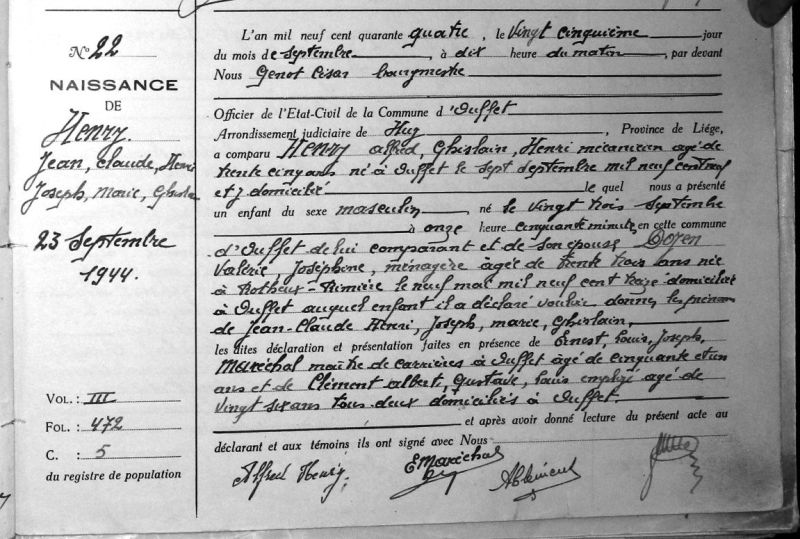 N° 22
NAISSANCE
DE
Henry.
Jean, Claude, Henri
Joseph, Marie, Ghislain
23 Septembre
1944.
VOL. : III
FOL. : 472
C. : 5
du registre de population
L'an mil neuf cent quarante quatre, le vingt cinquième jour
du mois de septembre, à dix heure du matin, par devant
Nous Genot César bourgmestre
Officier de l'Etat-Civil de la Commune d'Ouffet
Arrondissement judiciaire de Huy, Province de Liége,
a comparu Henry alfred, Ghislain, Henri mécanicien agé de
trente cinq ans né à Ouffet le sept septembre mil neuf cent neuf
et y domicilié le quel nous a présenté
un enfant du sexe masculin, né le vingt trois septembre
à onze heure cinquante minutes en cette commune
d'Ouffet de lui comparant et de son épouse Doyen
Valérie, Joséphine, ménagère âgée de trente trois ans née
à Rotheux-Rimière le neuf mai mil neuf cent onze domiciliée
à Ouffet auquel enfant il a déclaré vouloir donner les prénoms
de Jean-Claude Henri, Joseph, marie, Ghislain,
les dites déclaration et présentation faites en présence de Ernest, Louis, Joseph,
Maréchal maître de carrières à Ouffet âgé de cinquante et un
ans et de Clément albert, Gustave, Louis employé agé de
vingt six ans tous deux domiciliés à Ouffet.
et après avoir donné lecture du présent acte au
déclarant et aux témoins ils ont signé avec Nous
Alfred Henry. E Maréchal A Clément